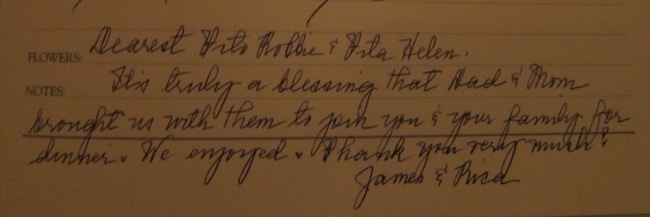 FLOWERS: Dearest Tito Robbie & Tita Helen,
NOTES: It's truly a blessing that Dad & Mom
brought us with them to join you & your family for
dinner. We enjoyed. Thank you very much!
James & Rica